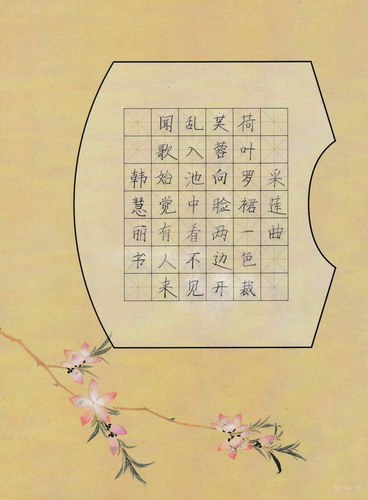 采莲曲
荷叶罗裙一色裁
芙蓉向脸两边开
乱入池中看不见
闻歌始觉有人来
韩慧丽书